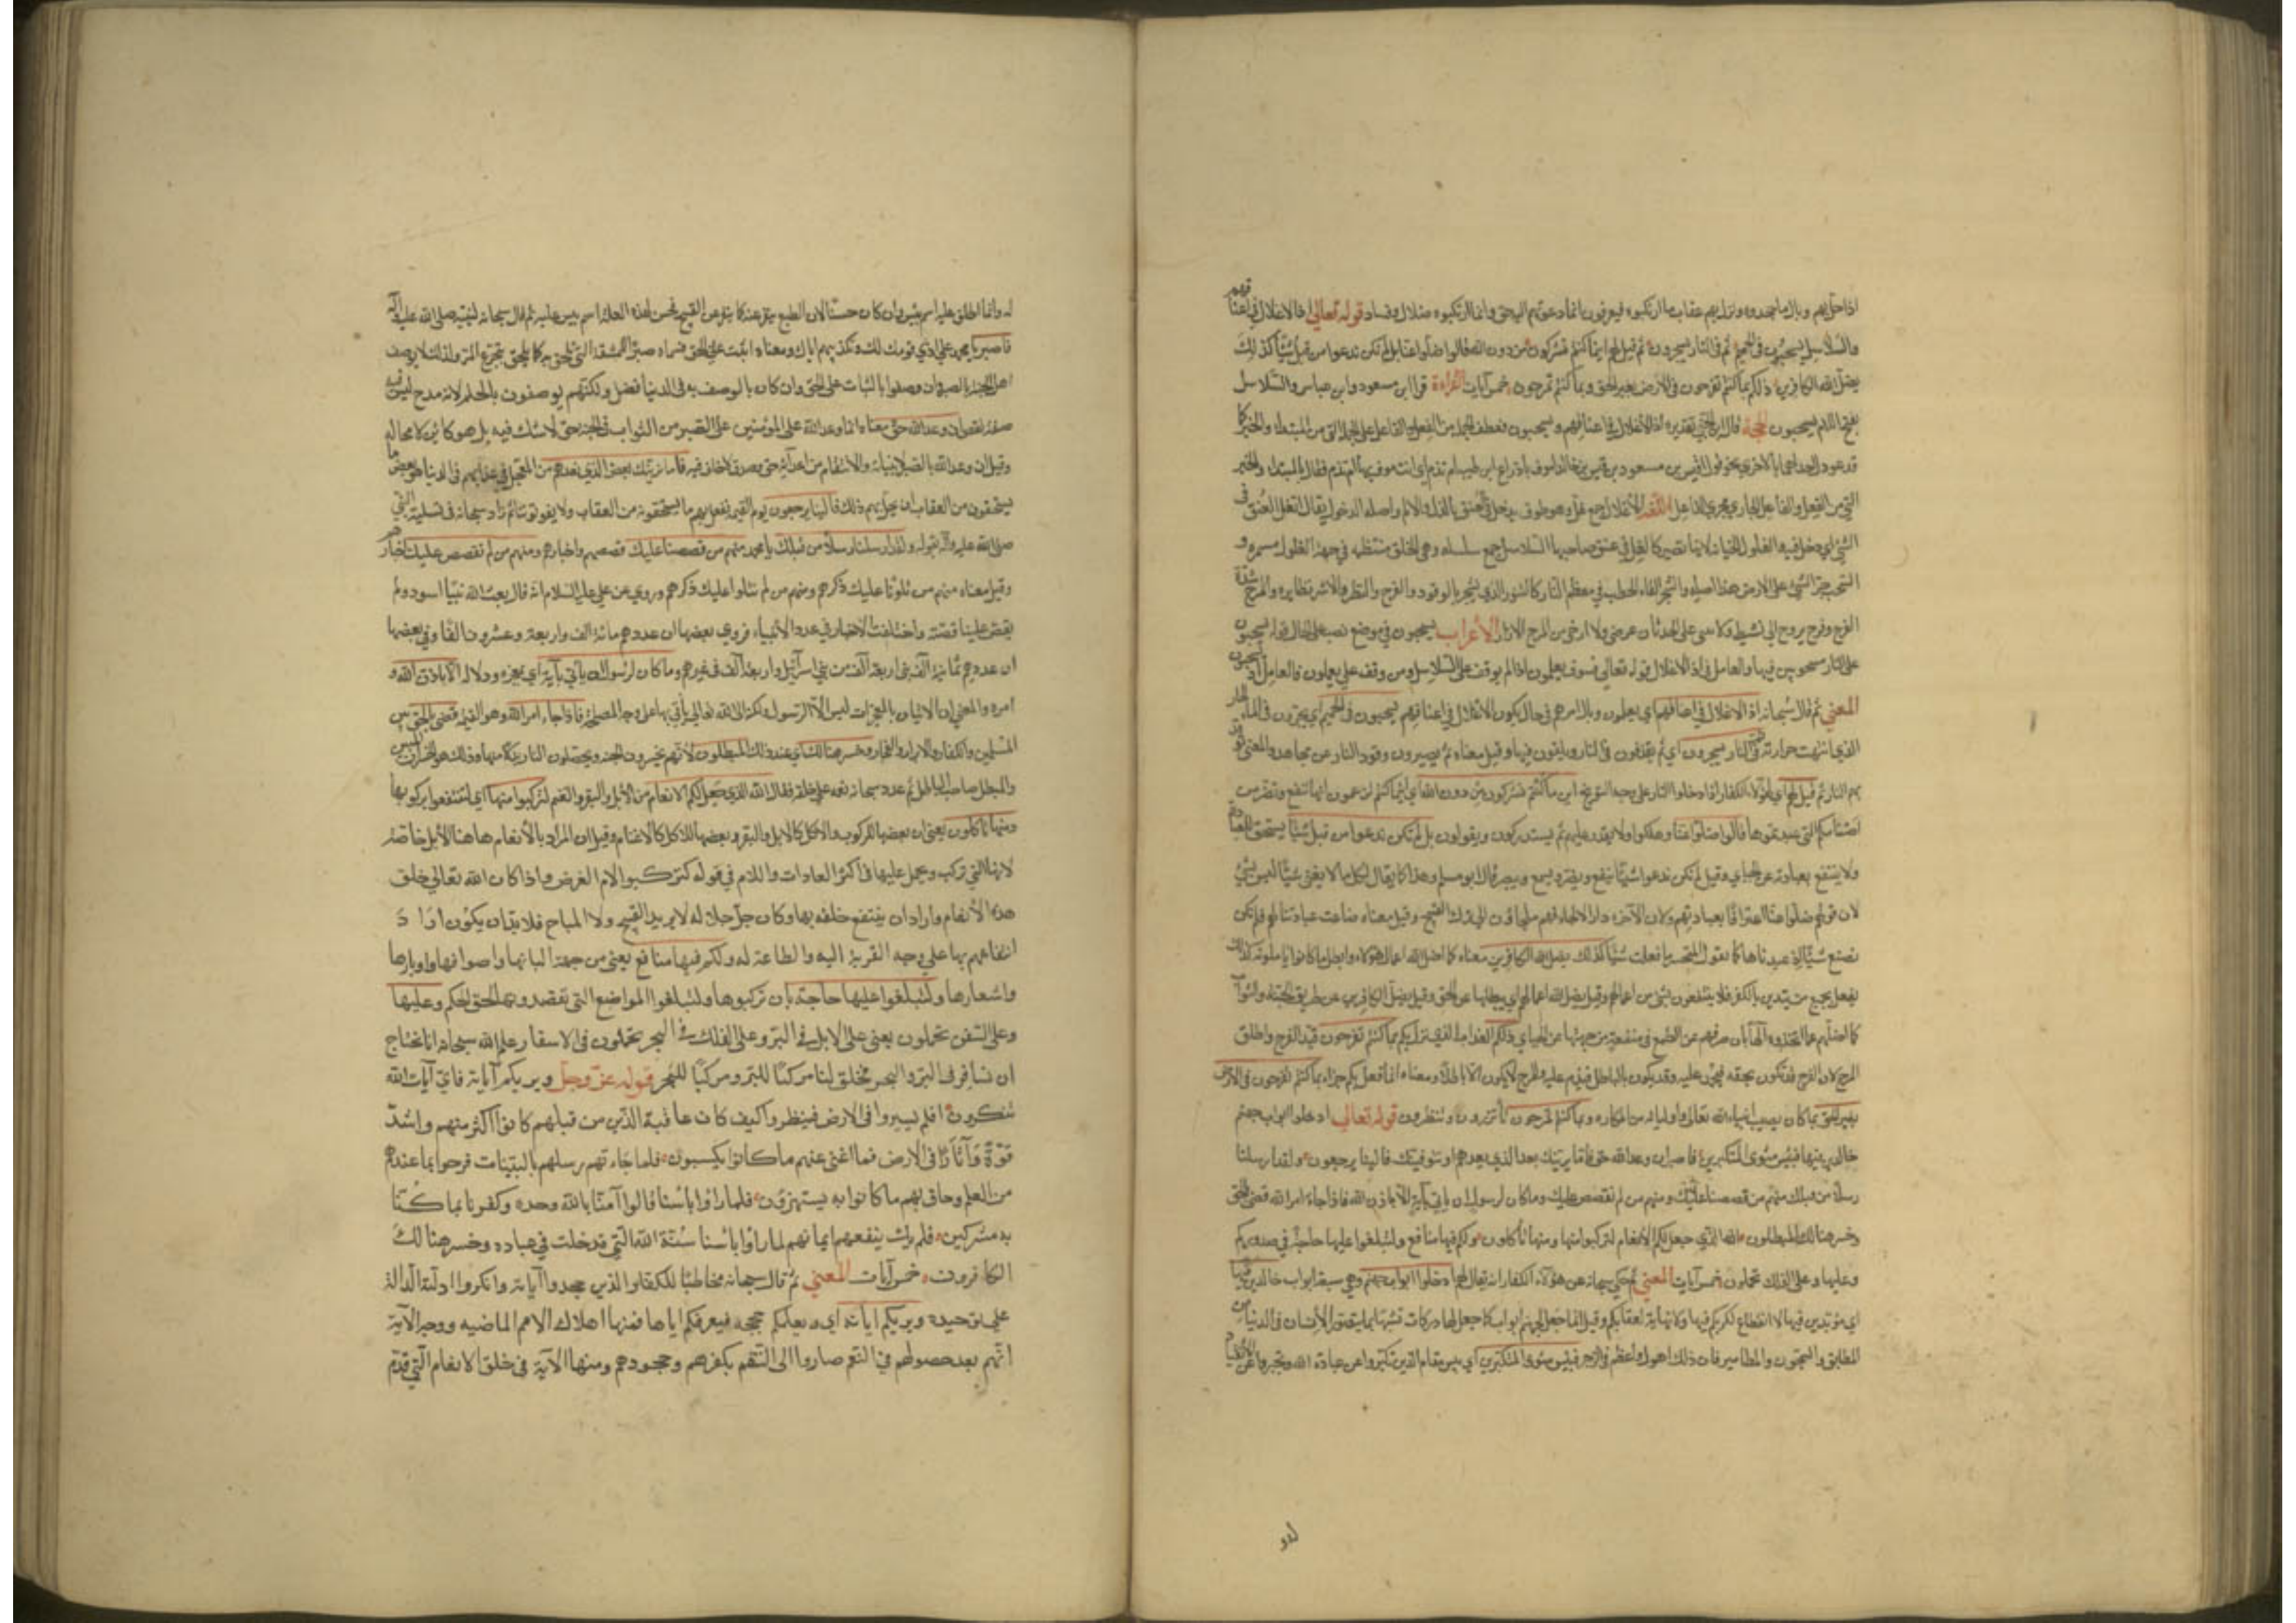 اذا حل بهم وبال ما جحدوه ونزل بهم عقاب ما ارتكبوه فيعرفون ان ما دعوتهم اليه حق وما ارتكبوه ضلال وفساد قوله تعالى اذ الاغلال في اعناقهم
والسلاسل يسحبون في الحميم ثم في النار يسجرون ثم قيل لهم اينما كنتم تشركون من دون الله قالوا ضلوا عنا بل لم نكن ندعوا من قبل شيئا كذلك
يضل الله الكافرين ذلكم بما كنتم تفرحون في الارض بغير الحق وبما كنتم تمرحون خمس آيات القراءة قرا ابن مسعود وابن عباس والسلاسل
بفتح اللام يسحبون الحجة قال ابن جني تقديره اذ الاغلال في اعناقهم ويسحبون فعطف الجملة من الفعل والفاعل على الجملة التي من المبتداء والخبر كما
قد عودلت احداهما بالاخرى نحو قول قيس بن مسعود بن قيس بن خالد الموف بادراع ابن طيبة ام تذم اي انت موف بها ام تذم فقابل المبتداء والخبر
التي من الفعل والفاعل الجاري مجرى الفاعل اللغة الاغلال جمع غل وهو طوق يدخل في العنق للذل والالم واصله الدخول يقال انغل العنق في
الشيء اي دخل فيه والغلول الخيانة لانها تصير كالغل في عنق صاحبها السلاسل جمع سلسلة وهي الحلق منتظمة في جهة الطول مستمرة و
السحب جر الشيء على الارض هذا اصله والسجر القاء الحطب في معظم النار كالتنور الذي يسجر بالوقود والفرح والبطر والاشر نظاير والمرح شدة
الفرح وفرس مروح اي نشيط ولا ارخي من المرح الازار الاعراب يسحبون في موضع نصب على الحال فقوله يسحبون
على النار مسحوبين فيها والعامل في اذ الاغلال قوله تعالى فسوف يعلمون اذا لم يوقف على السلاسل ومن وقف على يعلمون فالعامل اذ يسحبون
المعنى ثم قال سبحانه اذ الاغلال في اعناقهم اي يعلمون وبال امرهم في حال يكون الاغلال في اعناقهم يسحبون في الحميم اي يجرون في الماء الحار
الذي انتهت حرارته ثم في النار يسجرون اي ثم يقذفون في النار ويلقون فيها وقيل معناه ثم يصيرون وقود النار عن مجاهد والمعنى توقد
بهم النار ثم قيل لهم اي لهؤلاء الكفار اذا دخلوا النار على وجه التوبيخ اين ما كنتم تشركون من دون الله اي اينما كنتم تزعمون انها تنفع وتضر من
اصنامكم التي عبدتموها قالوا ضلوا عنا وهلكوا ولا نقدر عليهم ثم يستدركون ويقولون بل لم نكن ندعوا من قبل شيئا يستحق العبادة
ولا ينتفع بعبادته عن الجبائي وقيل لم نكن ندعوا شيئا ينفع ويضر ويسمع ويبصر قال ابو مسلم وهذا كما يقال لكل ما لا يغني شيئا ليس بشيء
لان قولهم ضلوا عنا اعترافا بعبادتهم ولان الآخرة دار الالجاء فهم ملجاؤن الى ترك القبيح وقيل معناه ضاعت عبادتنا لهم فلم نكن
نصنع شيئا اذ عبدناها كما يقول المتحسر ما فعلت شيئا كذلك يضل الله الكافرين معناه كما اضل الله اعمال هؤلاء وابطل ما كانوا ياملونه كذلك
يفعل بجميع من يتدين بالكفر فلا ينتفعون بشيء من اعمالهم وقيل يضل الله اعمالهم اي يبطلها عن الحق وقيل يضل الكافرين عن طريق الجنة والثواب
كما اضلهم عما اتخذوه الها بان صرفهم عن الطمع في منفعة من جهتها عن الجبائي ذلكم العذاب الذي نزل بكم بما كنتم تفرحون قيد الفرح واطلق
المرح لان الفرح قد تكون بحق فيحمد عليه وقد يكون بالباطل فيذم عليه والمرح لا يكون الا باطلا ومعناه انما فعل بكم جزاء بما كنتم تفرحون في الارض
بغير الحق بما كان يصيب انبياء الله تعالى واولياءه من المكاره وبما كنتم تمرحون تاشرون وتبطرون قوله تعالى ادخلوا ابواب جهنم
خالدين فيها فبئس مثوى المتكبرين فاصبر ان وعد الله حق فاما نرينك بعض الذي نعدهم او نتوفينك فالينا يرجعون ولقد ارسلنا
رسلا من قبلك منهم من قصصنا عليك ومنهم من لم نقصص عليك وما كان لرسول ان ياتي بآية الا باذن الله فاذا جاء امر الله قضي بالحق
وخسر هنالك المبطلون الله الذي جعل لكم الانعام لتركبوا منها ومنها تأكلون ولكم فيها منافع ولتبلغوا عليها حاجة في صدوركم
وعليها وعلى الفلك تحملون خمس آيات المعنى ثم حكى سبحانه عن هؤلاء الكفار انه يقال لهم ادخلوا ابواب جهنم وهي سبعة ابواب خالدين فيها
اي مؤبدين فيها لا انقطاع لكربكم فيها ولا نهاية لعقابكم وقيل انما جعل لجهنم ابواب كما جعل لها دركات تشبيها بما يتصور الانسان في الدنيا من
المطابق والسجون والمطامير فان ذلك اهول واعظم في الزجر فبئس مثوى المتكبرين اي بئس مقام الذين تكبروا عن عبادة الله وتجبروا عن الانقياد
له وانما اطلق عليه اسم بئس وان كان حسنا لان الطبع ينفر عنه كما ينفر عن القبيح فحسن لهذه العلة اسم بئس عليه ثم قال سبحانه لنبيه صلى الله عليه وآله
فاصبر يا محمد على اذى قومك لك وتكذيبهم اياك ومعناه اثبت على الحق فسماه صبرا للمشقة التي تلحق به كما يلحق بتجرع المر ولذلك لا يوصف
اهل الجنة بالصبر وان وصفوا بالثبات على الحق وان كان بالوصف به في الدنيا افضل ولكنهم يوصفون بالحلم لانه مدح ليس فيه
صفة نقص ان وعد الله حق معناه ان ما وعد الله على المؤمنين على الصبر من الثواب في الجنة حق لا شك فيه بل هو كائن لا محالة
وقيل ان وعد الله بالنصر لانبيائه والانتقام من اعدائه حق وصدق لا خلف فيه فاما نرينك بعض الذي نعدهم من العذاب في حياتهم في الدنيا هو بعض ما
يستحقون من العقاب ان نحل بهم ذلك فالينا يرجعون يوم القيمة فنفعل بهم ما يستحقونه من العقاب ولا يفوتوننا ثم زاد سبحانه في تسلية النبي
صلى الله عليه وآله بقوله ولقد ارسلنا رسلا من قبلك يا محمد منهم من قصصنا عليك قصصهم واخبارهم ومنهم من لم نقصص عليك اخبارهم
وقيل معناه منهم من تلونا عليك ذكرهم ومنهم من لم نتلوا عليك ذكرهم وروي عن علي عليه السلام انه قال بعث الله نبيا اسود ولم
يقص علينا قصته واختلفت الاخبار في عدد الانبياء فروي بعضها ان عددهم مائة الف واربعة وعشرون الفا وفي بعضها
ان عددهم ثمانية آلاف نبي اربعة آلاف من بني اسرائيل واربعة آلاف من غيرهم وما كان لرسول ان ياتي بآية اي بمعجزة ودلالة الا باذن الله و
امره والمعنى ان الاتيان بالمعجزات ليس الا الرسول ولكنه الى الله تعالى ياتي بها على وجه المصلحة فاذا جاء امر الله وهو القيمة قضي بالحق بين
المسلمين والكفار والابرار والفجار وخسر هنالك اي عند ذلك المبطلون لانهم يخسرون الجنة ويحصلون النار بدلا منها وذلك هو الخسران المبين
والمبطل صاحب الباطل ثم عدد سبحانه نعمه على خلقه فقال الله الذي جعل لكم الانعام من الابل والبقر والغنم لتركبوا منها اي لتنتفعوا بركوبها
ومنها تاكلون يعني ان بعضها للركوب والاكل كالابل والبقر وبعضها للاكل كالاغنام وقيل ان المراد بالانعام هاهنا الابل خاصة
لانها التي تركب ويحمل عليها في اكثر العادات واللام في قوله لتركبوا لام الغرض واذا كان الله تعالى خلق
هذه الانعام واراد ان ينتفع خلقه بها وكان جل جلاله لا يريد القبيح ولا المباح فلا بد ان يكون اراد
انتفاعهم بها على وجه القربة اليه والطاعة له ولكم فيها منافع يعني من جهة البانها واصوافها واوبارها
واشعارها ولتبلغوا عليها حاجة بان تركبوها ولتبلغوا المواضع التي تقصدونها لحوايجكم وعليها
وعلى السفن تحملون يعني على الابل في البر وعلى الفلك في البحر تحملون في الاسفار علم الله سبحانه انا نحتاج
ان نسافر في البر والبحر فخلق لنا مركبا للبر ومركبا للبحر قوله عز وجل ويريكم آياته فاي آيات الله
تنكرون افلم يسيروا في الارض فينظروا كيف كان عاقبة الذين من قبلهم كانوا اكثر منهم واشد
قوة وآثارا في الارض فما اغنى عنهم ما كانوا يكسبون فلما جاءتهم رسلهم بالبينات فرحوا بما عندهم
من العلم وحاق بهم ما كانوا به يستهزؤن فلما راوا باسنا قالوا آمنا بالله وحده وكفرنا بما كنا
به مشركين فلم يك ينفعهم ايمانهم لما راوا باسنا سنة الله التي قد خلت في عباده وخسر هنالك
الكافرون خمس آيات المعنى ثم قال سبحانه مخاطبا للكفار الذين جحدوا آياته وانكروا ادلته الدالة
على توحيده ويريكم آياته اي ويعلمكم حججه فيعرفكم اياها فمنها اهلاك الامم الماضية ووجه الآية
انهم بعد حصولهم في النعم صاروا الى النقم بكفرهم وجحودهم ومنها الآية في خلق الانعام التي قدم